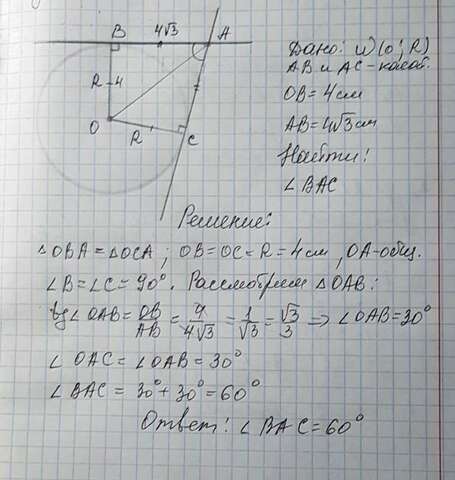 B 4√3 A
R 4
O R C
Дано: W(O; R)
AB и AC - касат.
OB = 4 см
AB = 4√3 см
Найти:
∠BAC
Решение:
△OBA = △OCA ; OB = OC = R = 4 см , OA - общ.
∠B = ∠C = 90°. Рассмотрим △OAB:
tg∠OAB = OB/AB = 4/4√3 = 1/√3 = √3/3 ⇒ ∠OAB = 30°
∠OAC = ∠OAB = 30°
∠BAC = 30° + 30° = 60°
Ответ: ∠BAC = 60°